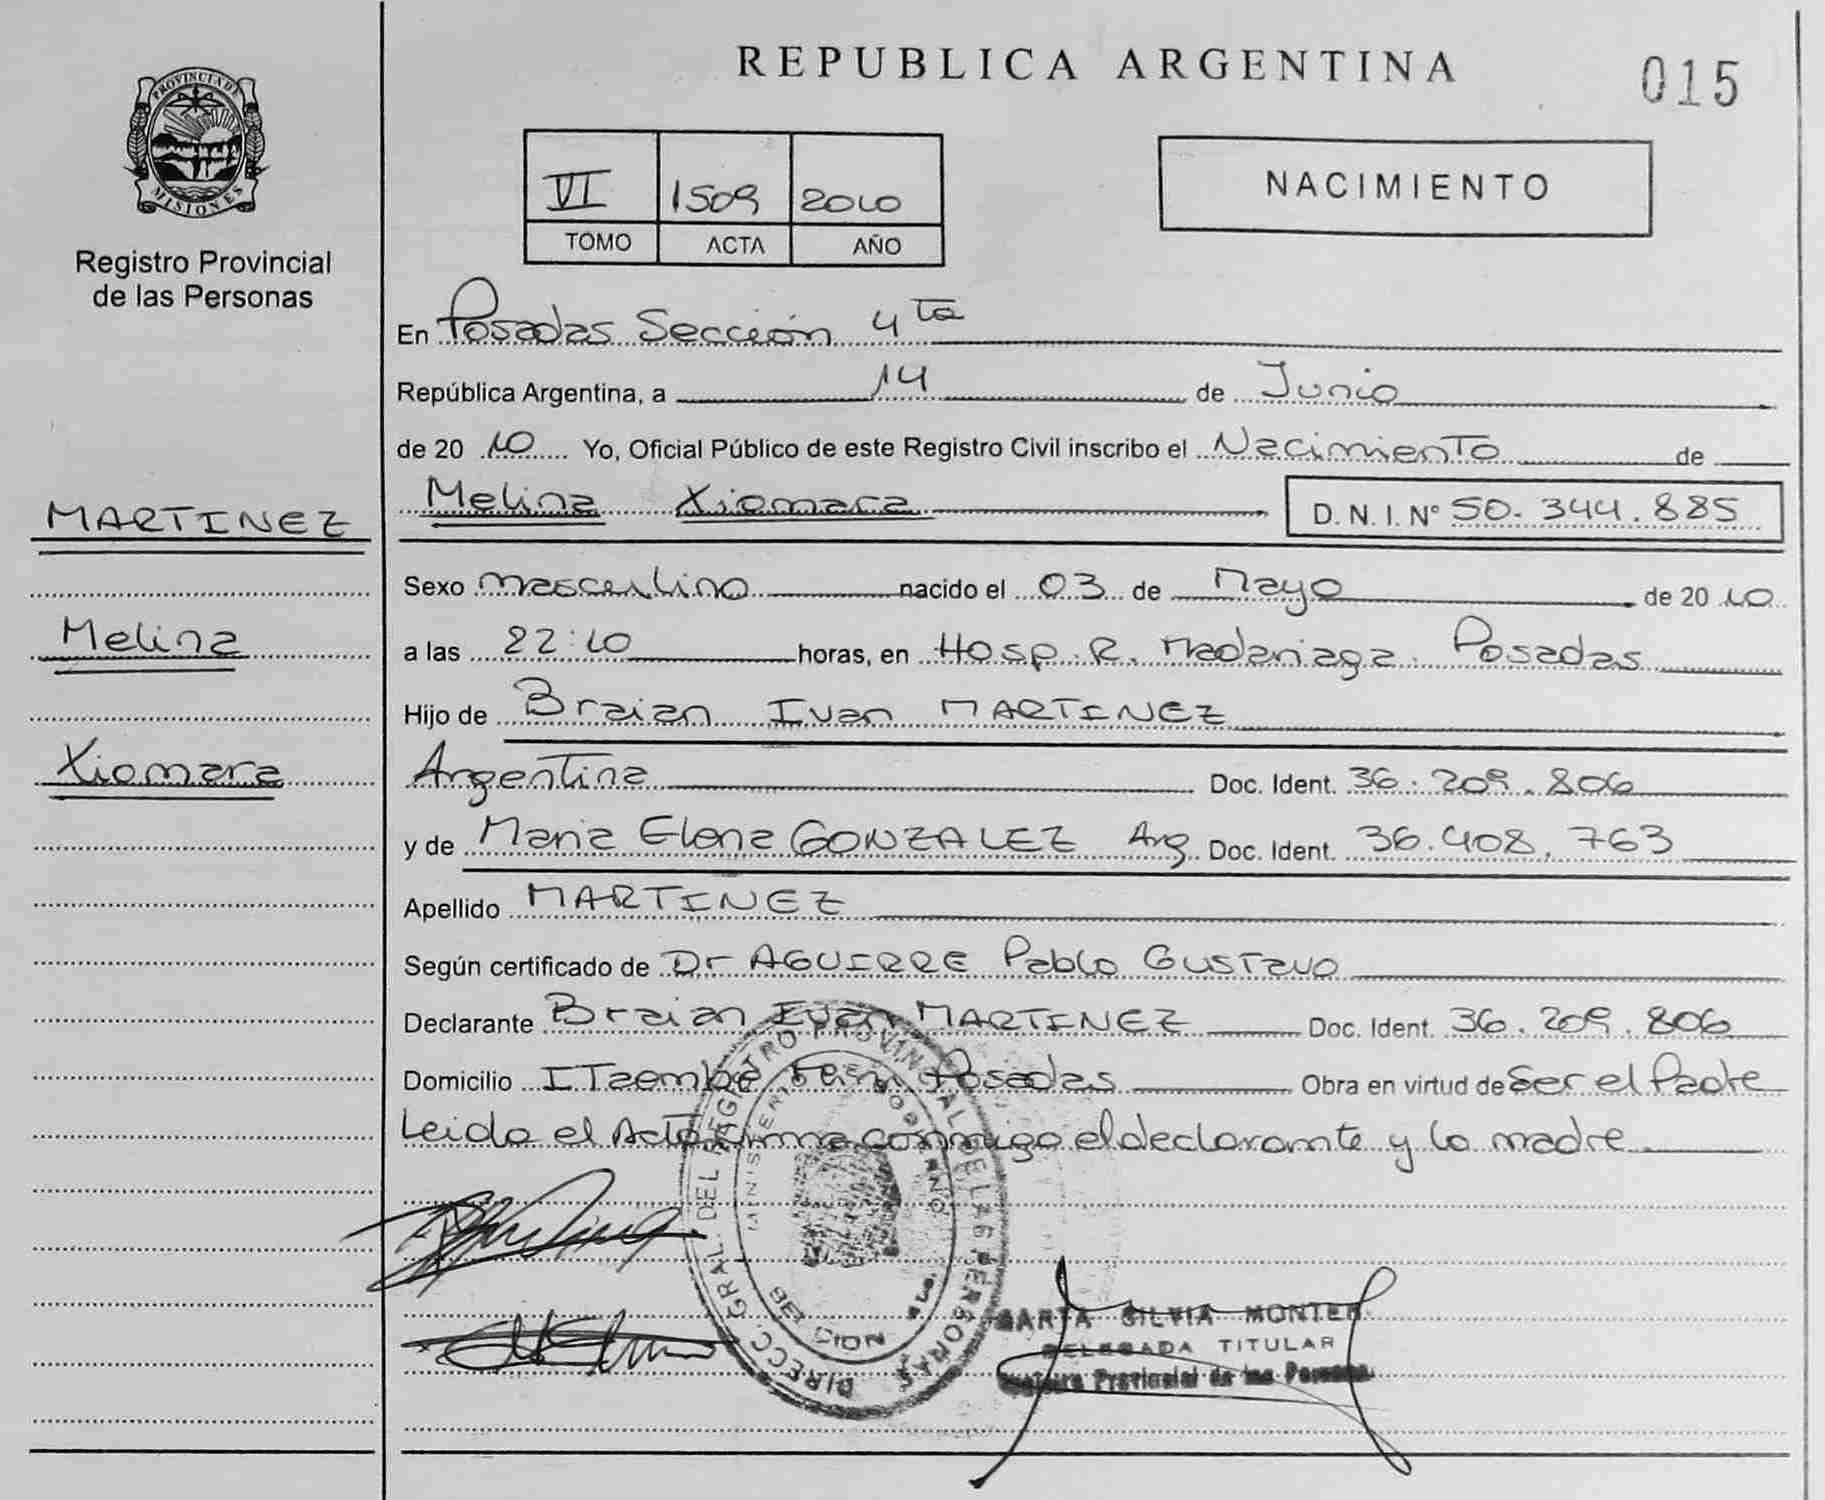 PROVINCIA DE MISIONES
Registro Provincial
de las Personas
MARTINEZ
Melina
Xiomara
REPUBLICA ARGENTINA
015
VI 1509 2010
TOMO ACTA AÑO
NACIMIENTO
En Posadas Sección 4ta
República Argentina, a 14 de Junio
de 2010 Yo, Oficial Público de este Registro Civil inscribo el Nacimiento de
Melina Xiomara D.N.I. Nº 50.344.885
Sexo masculino nacido el 03 de Mayo de 2010
a las 22:10 horas, en Hosp. R. Madariaga. Posadas
Hijo de Braian Ivan MARTINEZ
Argentina Doc. Ident. 36.209.806
y de Maria Elena GONZALEZ Arg. Doc. Ident. 36.408.763
Apellido MARTINEZ
Según certificado de Dr AGUIRRE Pablo Gustavo
Declarante Braian Ivan MARTINEZ Doc. Ident. 36.209.806
Domicilio Itaembé Posadas Obra en virtud de Ser el Padre
Leida el Acta firma conmigo el declarante y la madre
DIRECC. GRAL. DEL REGISTRO PROVINCIAL DE LAS PERSONAS
MINISTERIO DE GOBIERNO
SILVIA MONTER
DELEGADA TITULAR
Provincial de las Personas